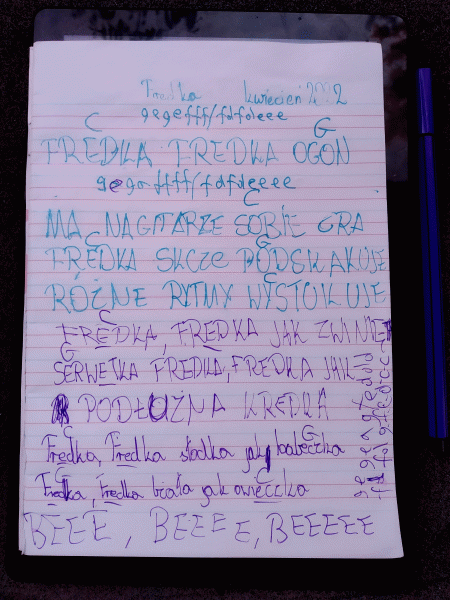 Fredka kwiecień 2022
gegefff/fdfdeee
C G
FREDKA FREDKA OGON
gegeffff/fdfdeeee
C
MA NA GITARZE SOBIE GRA
C G
FREDKA SKCZE PODSKAKUJE
C
RÓŻNE RYTMY WYSTUKUJE
C
FREDKA, FREDKA JAK ZWINIĘTA
G
SERWETKA FREDKA, FREDKA JAK
PODŁUŻNA KREDKA
C G
Fredka, Fredka słodka jak babeczka
G C
Fredka, Fredka biała jak owieczka
BEEE, BEEEE, BEEEEE